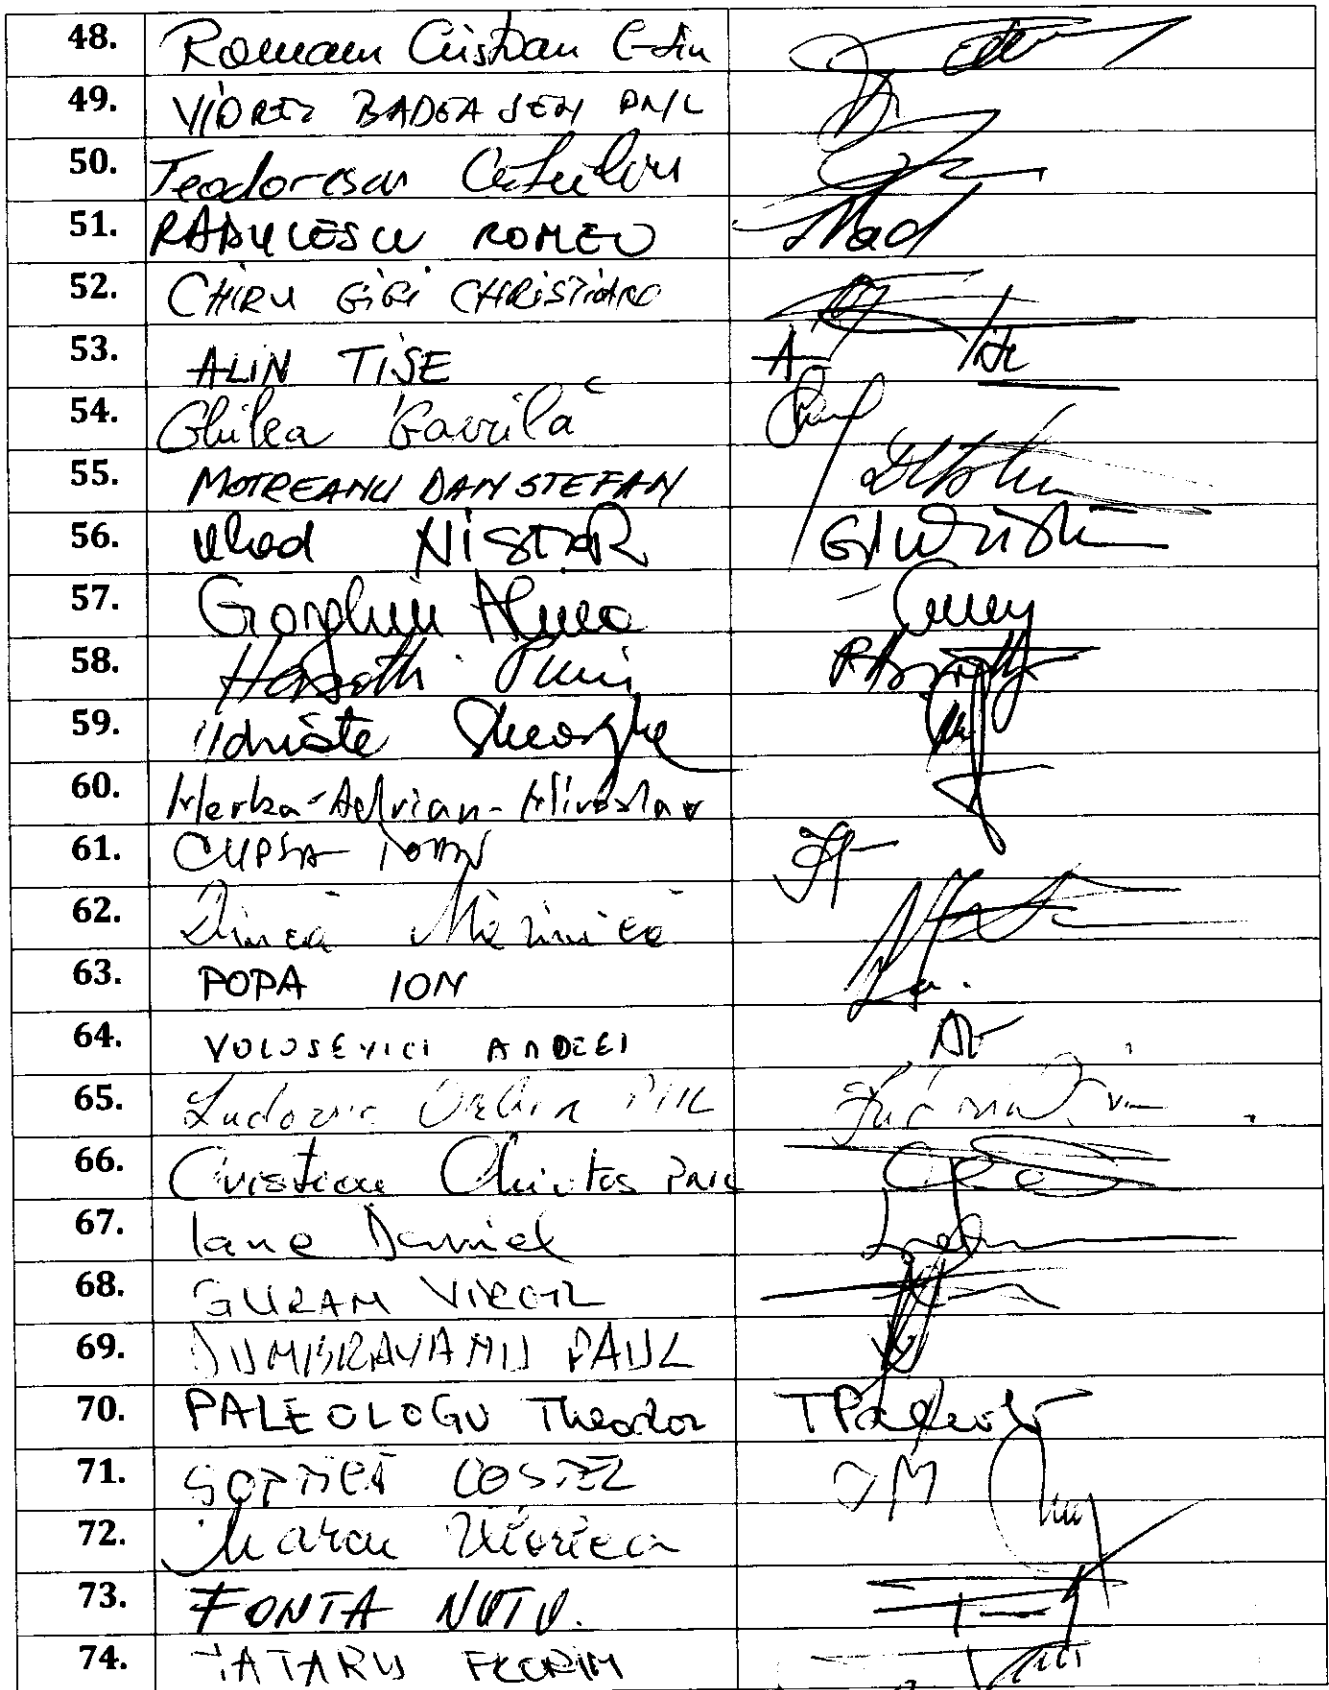 48. Roman Cristian
49. VIOREL BADEA SEN PNL
50. Teodorescu Cătălin
51. RADULESCU ROMEO
52. CHIRU GIGI CHRISTIAN
53. ALIN TIȘE A Tișe
54. Ghilea Gavrilă
55. MOTREANU DAN STEFAN
56. Vlad NISTOR
57. Gorghiu Alina
58. Horvath
59. Udriște Gheorghe
60. Merka-Adrian-Miroslav
61. CUPSA IOAN
62. Dincă Mărinică
63. POPA ION
64. VOLOSEVICI ANDREI
65. Ludovic Orban PNL
66. Cristian Chirteș PNL
67. Iane Daniel
68. GURAN VIRGIL
69. DUMBRAVANU PAUL
70. PALEOLOGU Theodor TPaleologu
71. ȘOPTICĂ COSTEL
72. Marcu Viorica
73. FONTA NUȚU.
74. TATARU FLORIN